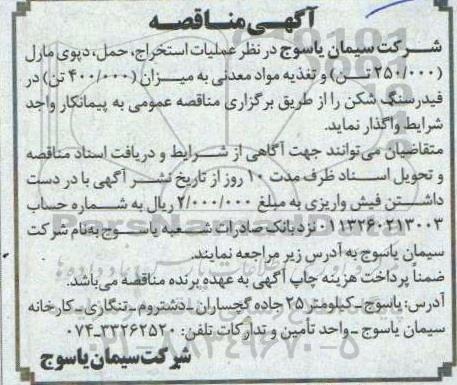 آگهی مناقصه
شرکت سیمان یاسوج در نظر عملیات استخراج، حمل، دپوی مارل
(۲۵۰/۰۰۰ تن) و تغذیه مواد معدنی به میزان (۴۰۰/۰۰۰ تن) در
فیدر سنگ شکن را از طریق برگزاری مناقصه عمومی به پیمانکار واجد
شرایط واگذار نماید.
متقاضیان می توانند جهت آگاهی از شرایط و دریافت اسناد مناقصه
و تحویل اسناد ظرف مدت ۱۰ روز از تاریخ نشر آگهی با در دست
داشتن فیش واریزی به مبلغ ۲/۰۰۰/۰۰۰ ریال به شماره حساب
۰۱۱۳۲۶۰۲۱۳۰۰۳ نزد بانک صادرات شعبه یاسوج به نام شرکت
سیمان یاسوج به آدرس زیر مراجعه نمایند.
ضمناً پرداخت هزینه چاپ آگهی به عهده برنده مناقصه می باشد.
آدرس: یاسوج-کیلومتر ۲۵ جاده گچساران-دشتروم-تنگاری-کارخانه
سیمان یاسوج-واحد تأمین و تدارکات تلفن: ۳۳۲۶۲۵۲۰-۰۷۴
شرکت سیمان یاسوج
ParsNamadData
۰۲۱-۸۸۳۴۹۶۷۰-۵